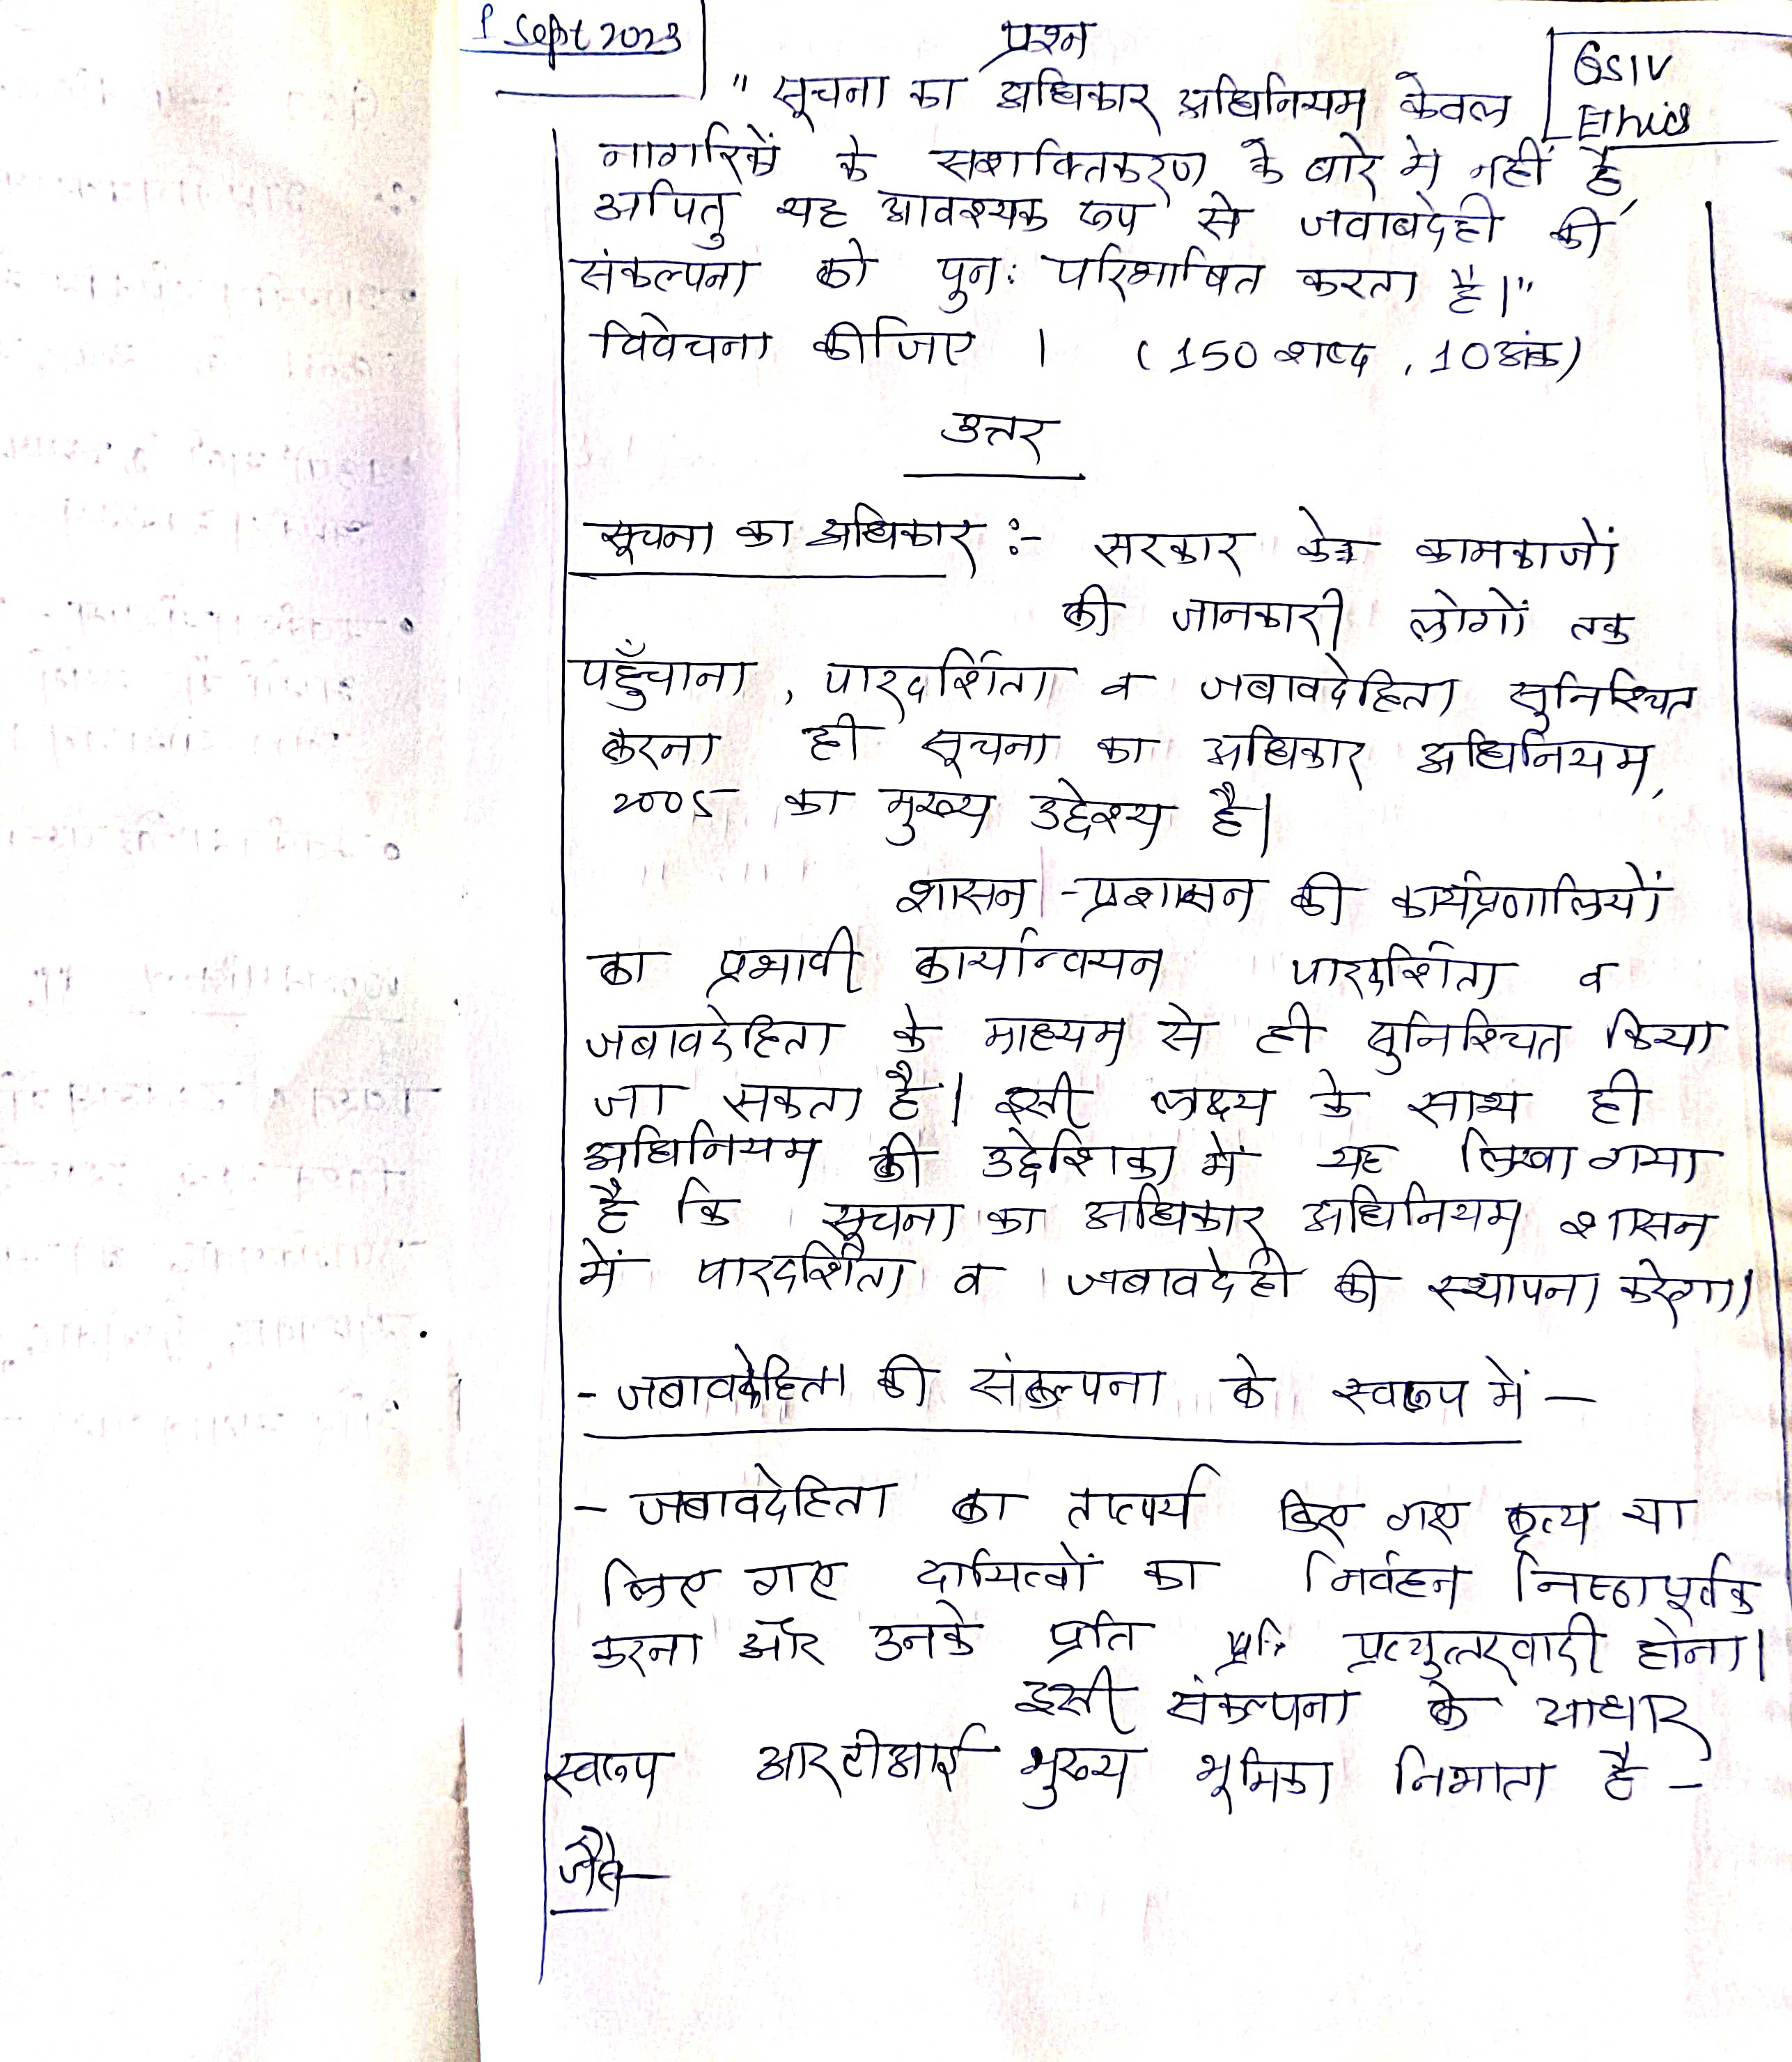 1 Sept 2023
प्रश्न
GSIV
Ethics
" सूचना का अधिकार अधिनियम केवल
नागरिकों के सशक्तिकरण के बारे में नहीं है,
अपितु यह आवश्यक रूप से जवाबदेही की
संकल्पना को पुन: परिभाषित करता है।"
विवेचना कीजिए । (150 शब्द , 10 अंक)
उत्तर
सूचना का अधिकार :- सरकार के कामकाजों
की जानकारी लोगों तक
पहुँचाना , पारदर्शिता व जबावदेहिता सुनिश्चित
करना ही सूचना का अधिकार अधिनियम,
2005 का मुख्य उद्देश्य है।
शासन - प्रशासन की कार्यप्रणालियों
का प्रभावी कार्यान्वयन पारदर्शिता व
जबावदेहिता के माध्यम से ही सुनिश्चित किया
जा सकता है। इसी लक्ष्य के साथ ही
अधिनियम की उद्देशिका में यह लिखा गया
है कि सूचना का अधिकार अधिनियम शासन
में पारदर्शिता व जबावदेही की स्थापना करेगा।
- जबावदेहिता की संकल्पना के स्वरूप में —
- जबावदेहिता का तात्पर्य किए गए कृत्य या
लिए गए दायित्वों का निर्वहन निष्ठापूर्वक
करना और उनके प्रति प्रत्युत्तरवादी होना।
इसी संकल्पना के आधार
स्वरूप आरटीआई मुख्य भूमिका निभाता है -
जैसे—